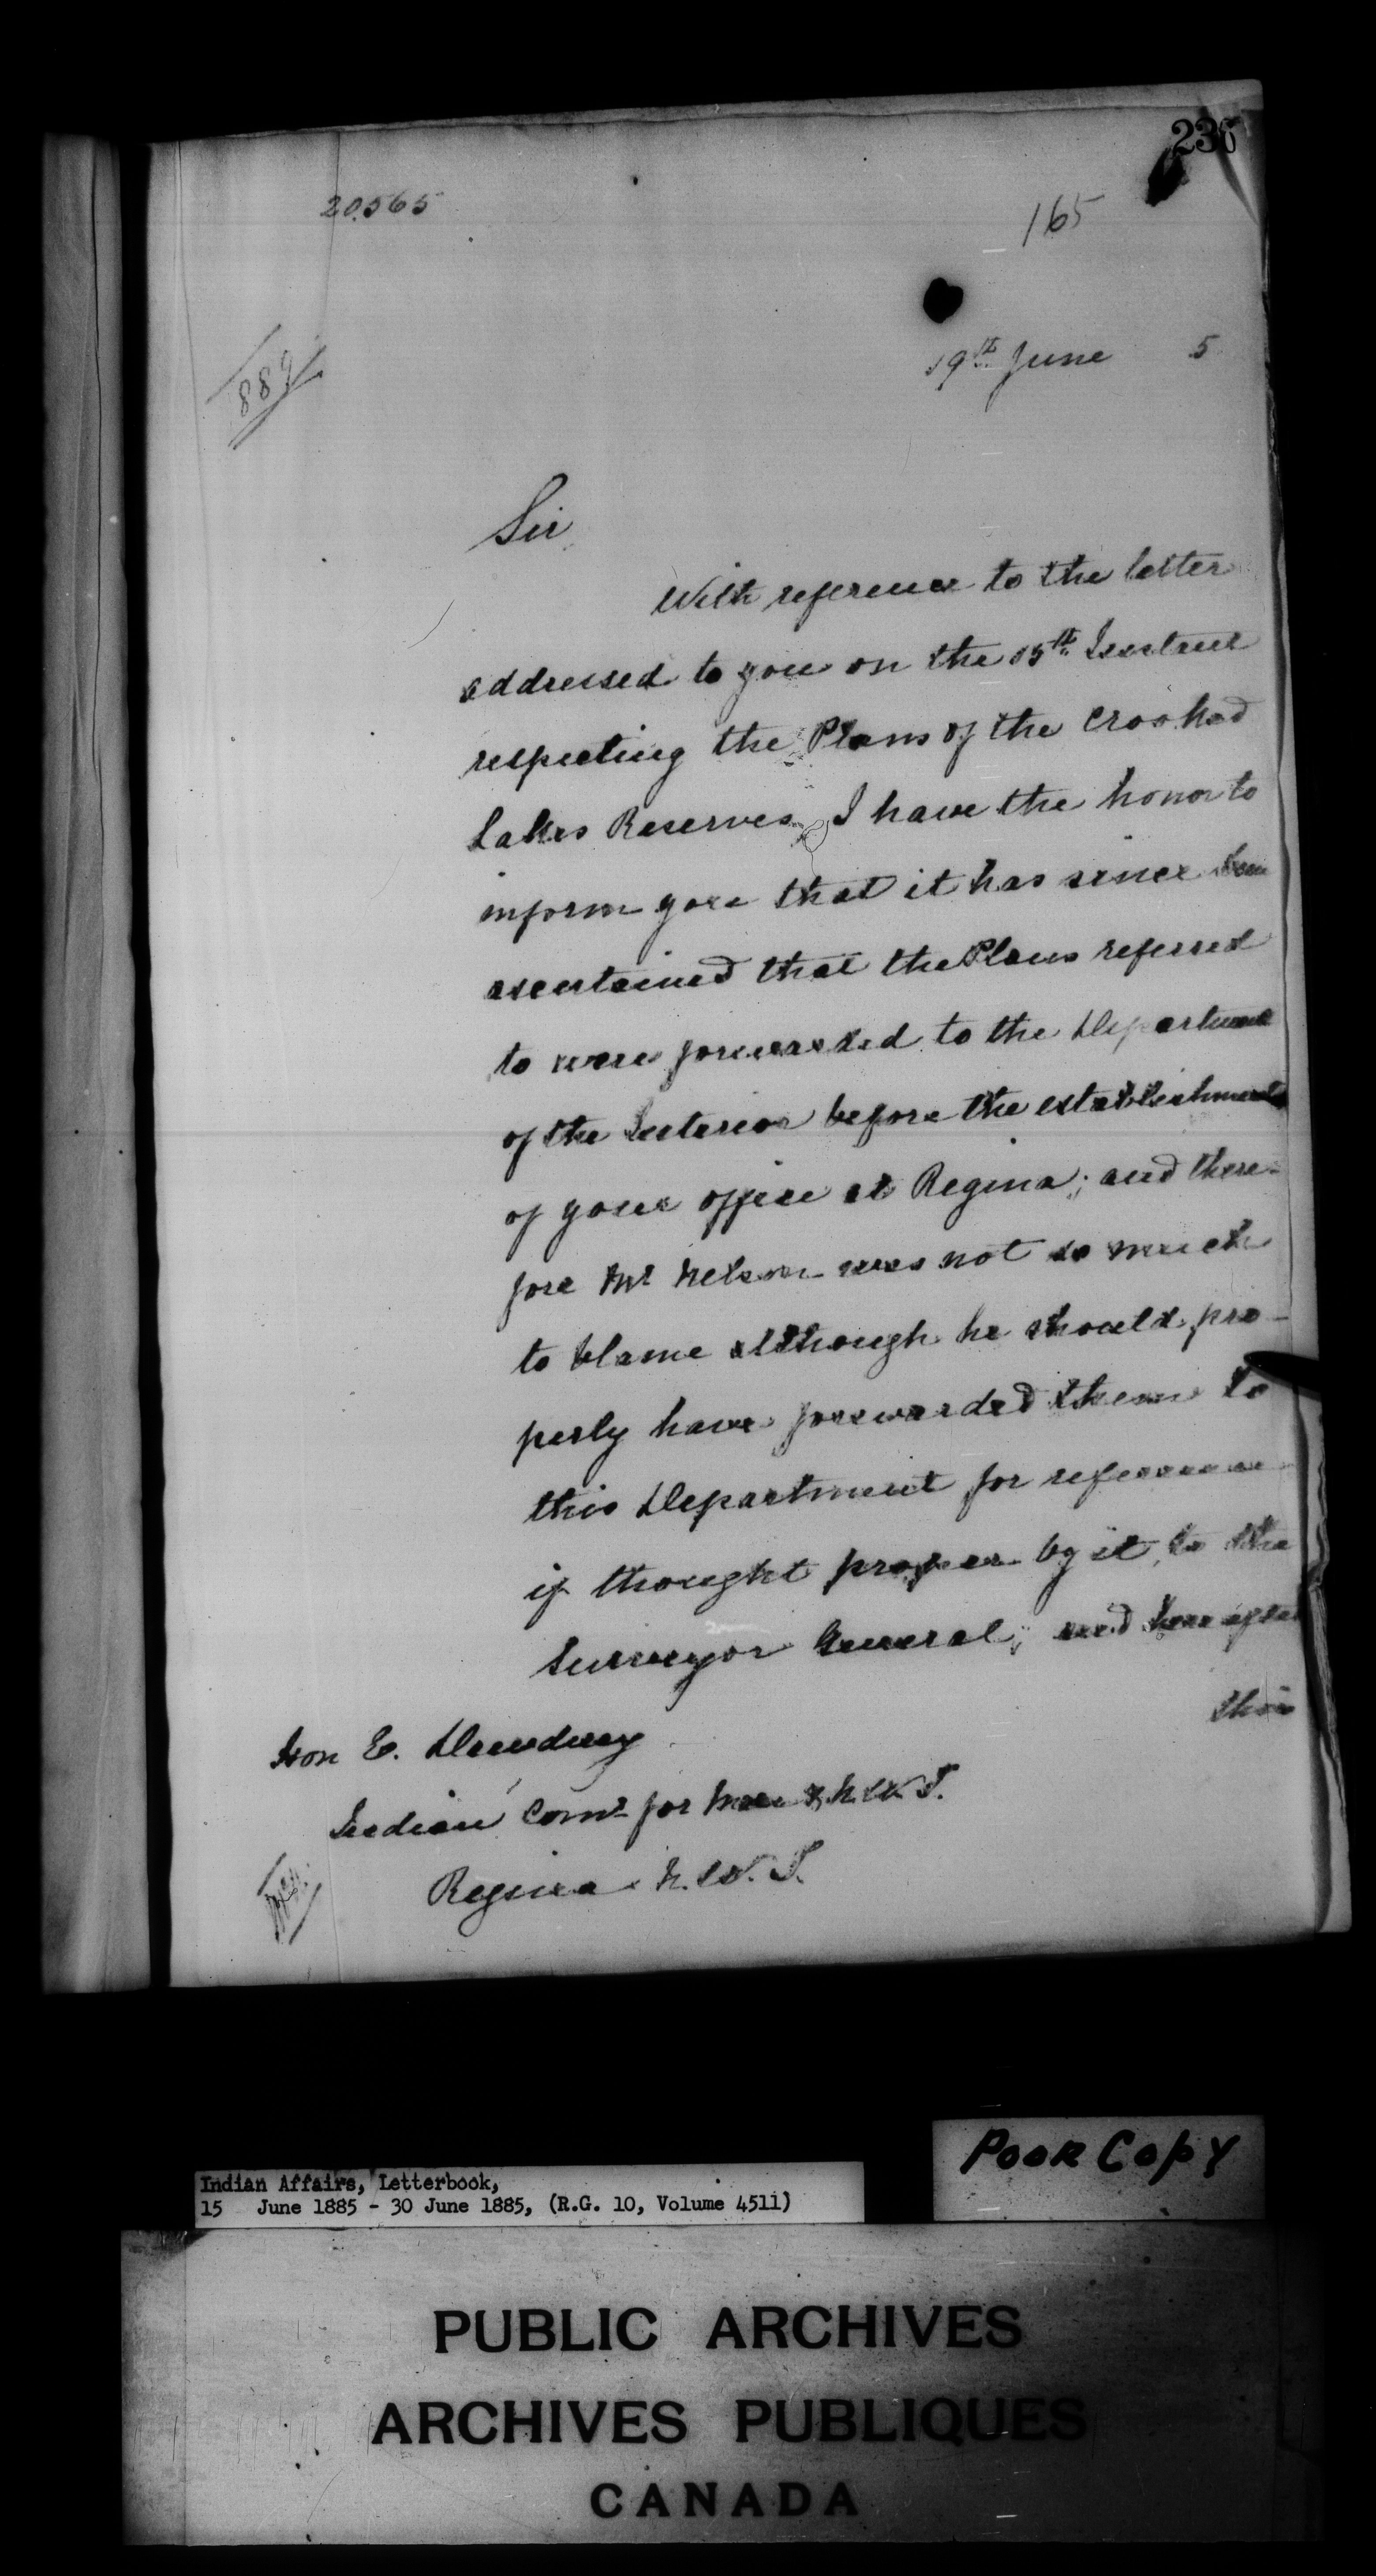 236
20565
165
19th June 5
889
Sir
With reference to the letter
addressed to you on the 15th Instant
respecting the Plans of the Crooked
Lakes Reserves, I have the honor to
inform you that it has since been
ascertained that the Plans referred
to were forwarded to the Department
of the Interior before the establishment
of your office at Regina; and there-
fore Mr Nelson was not so much
to blame although he should pro-
perly have forwarded them to
this Department for reference
if thought proper by it, to the
Surveyor General; and hereafter
this
Hon E. Dewdney
Indian Comr for Man & N.W.T.
Regina N.W.T.
Poor Copy
Indian Affairs, Letterbook,
15 June 1885 - 30 June 1885, (R.G. 10, Volume 4511)
PUBLIC ARCHIVES
ARCHIVES PUBLIQUES
CANADA